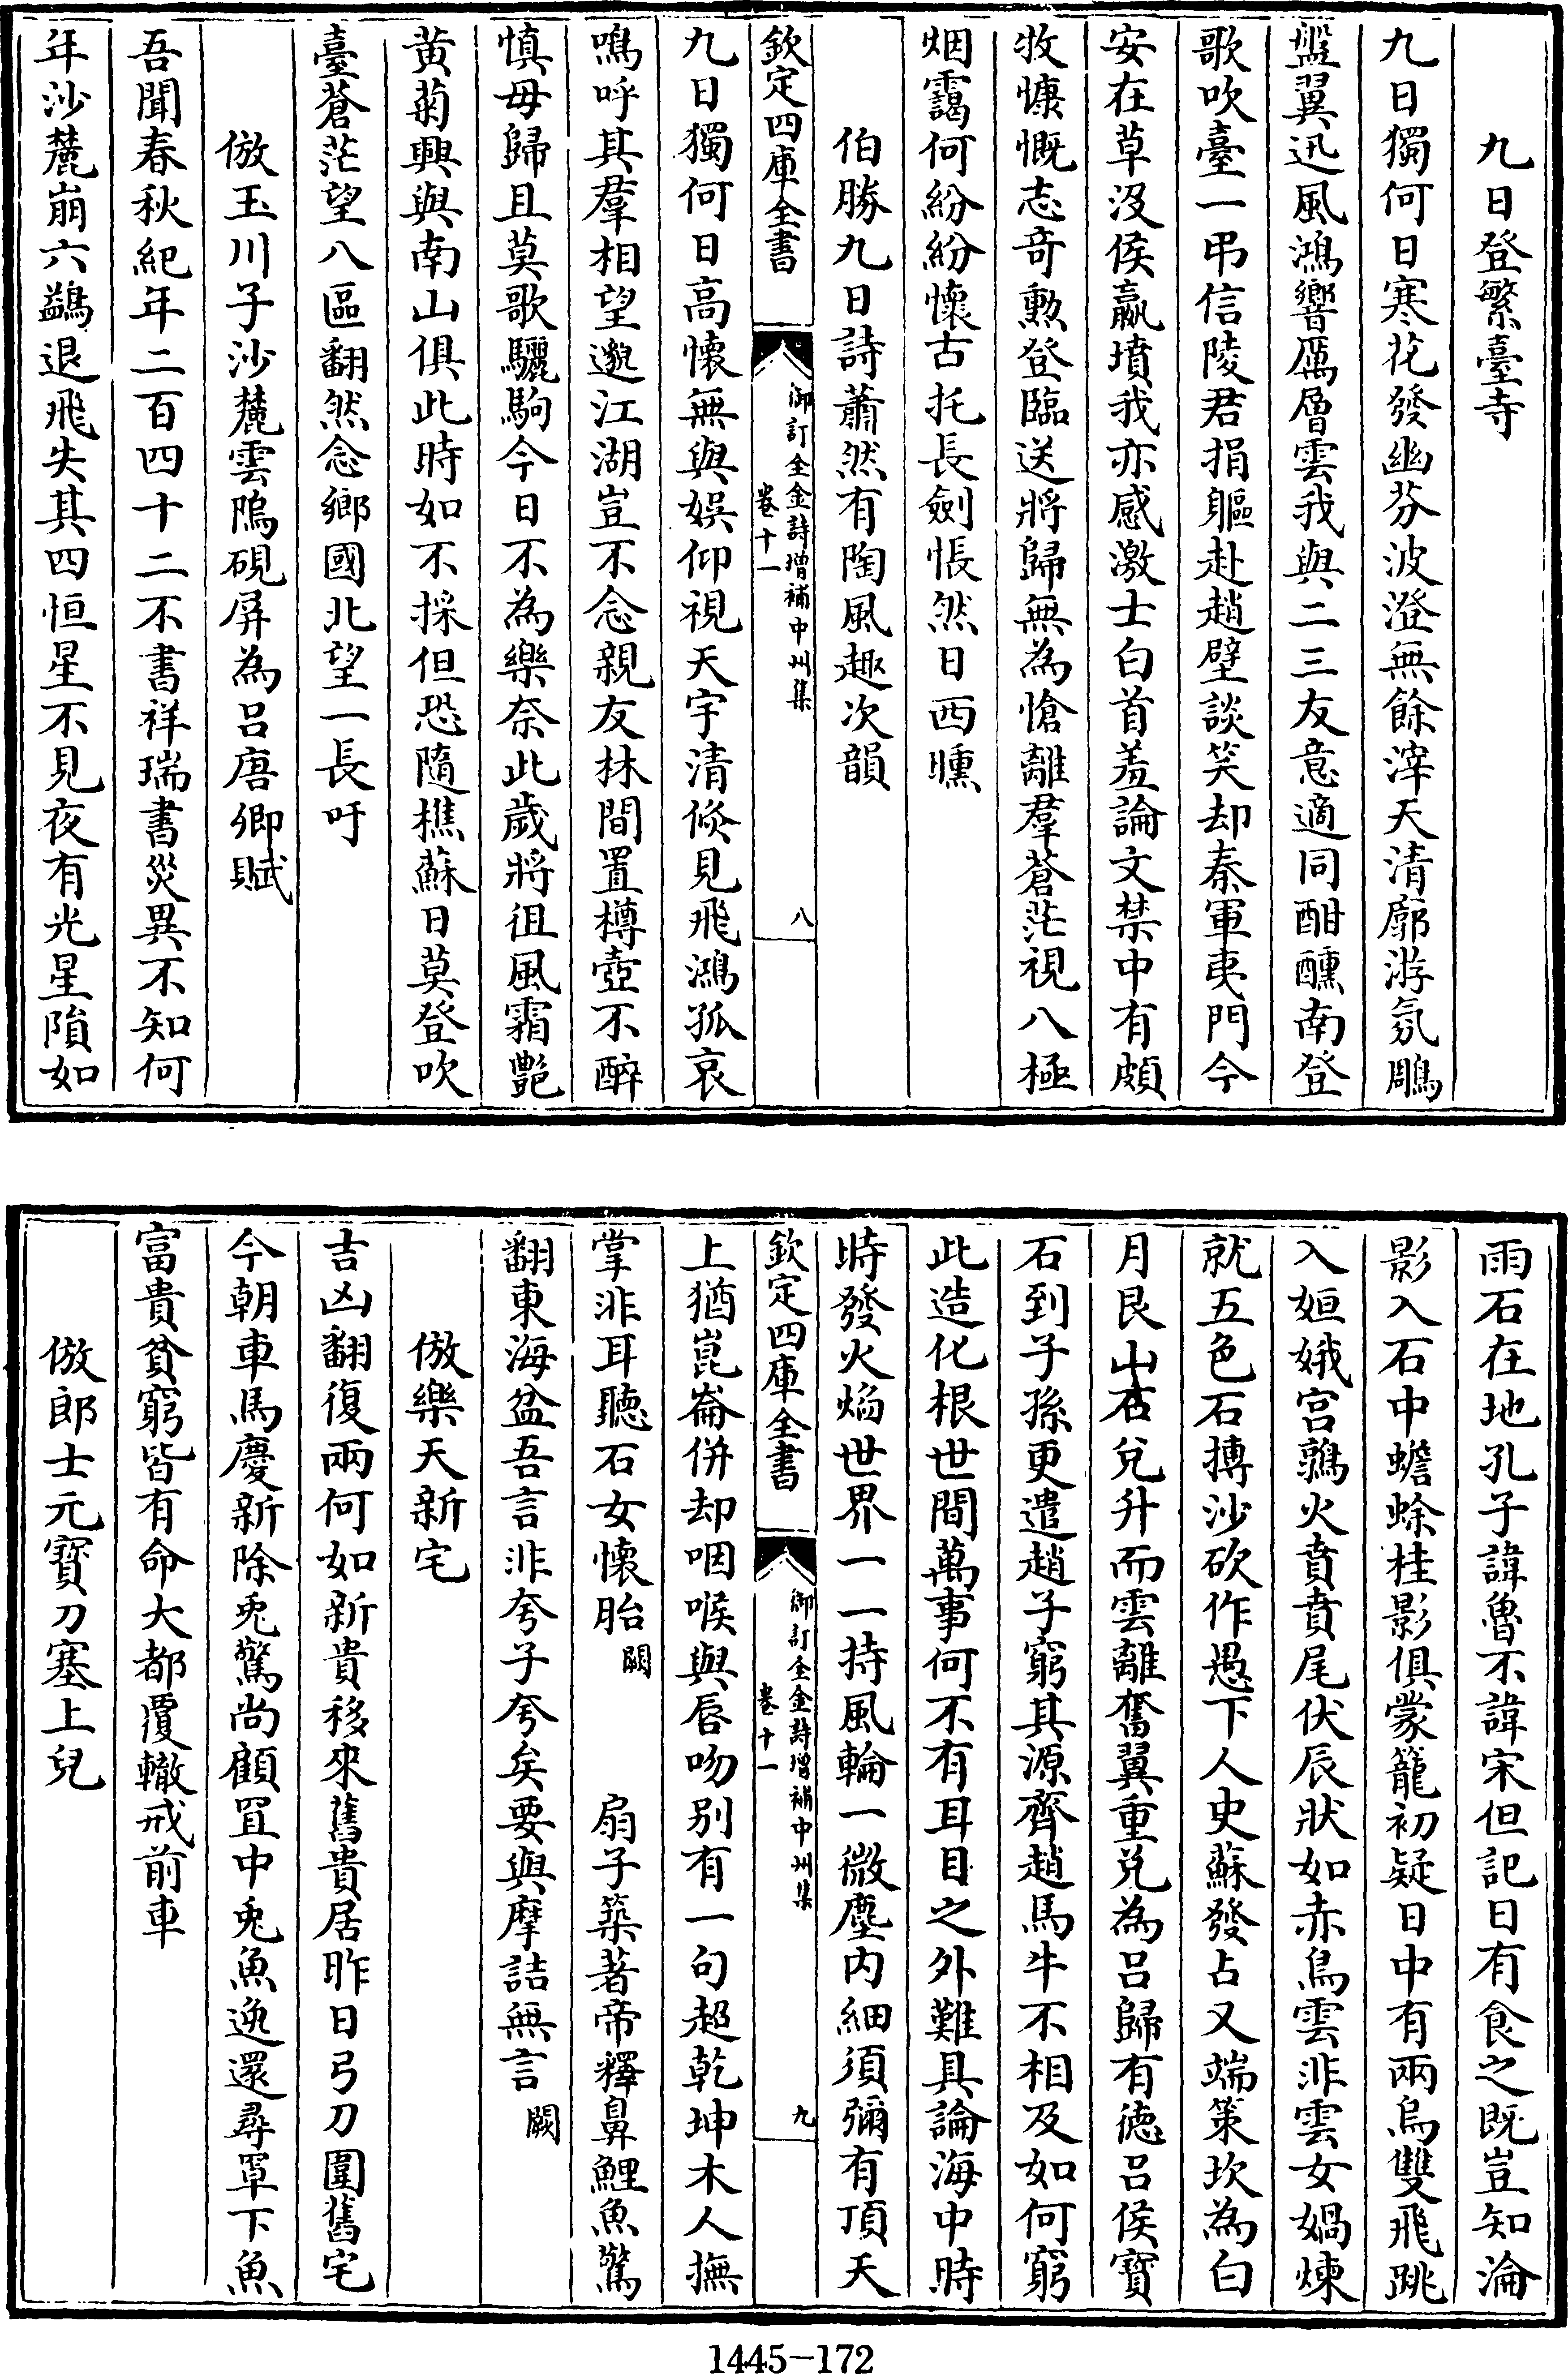 九日登繁臺寺
九日獨何日寒花發幽芬波澄無餘滓天清廓游氛鵰
盤翼迅風鴻響厲層雲我與二三友意適同酣醺南登
歌吹臺一弔信陵君捐軀赴趙壁談笑却秦軍夷門今
安在草沒侯嬴墳我亦感激士白首羞論文禁中有頗
牧慷慨志奇勲登臨送將歸無為愴離羣蒼茫視八極
烟靄何紛紛懷古托長劍悵然日西曛
伯勝九日詩蕭然有陶風趣次韻
欽定四庫全書
御訂全金詩增補中州集
卷十一
八
九日獨何日高懷無與娛仰視天宇清倐見飛鴻孤哀
鳴呼其羣相望邈江湖豈不念親友林間置樽壺不醉
慎毋歸且莫歌驪駒今日不為樂奈此歲將徂風霜艷
黃菊興與南山俱此時如不採但恐隨樵蘇日莫登吹
臺蒼茫望八區翻然念鄉國北望一長吁
倣玉川子沙麓雲鴈硯屏為呂唐卿賦
吾聞春秋紀年二百四十二不書祥瑞書災異不知何
年沙麓崩六鷁退飛失其四恒星不見夜有光星隕如
雨石在地孔子諱魯不諱宋但記日有食之既豈知淪
影入石中蟾蜍桂影俱蒙籠初疑日中有兩烏雙飛跳
入姮娥宮鶉火賁賁尾伏辰狀如赤鳥雲非雲女媧煉
就五色石摶沙砍作愚下人史蘇發占又端策坎為白
月艮山石兌升而雲離奮翼重兌為呂歸有德呂侯寶
石到子孫更遣趙子窮其源齊趙馬牛不相及如何窮
此造化根世間萬事何不有耳目之外難具論海中時
時發火焰世界一一持風輪一微塵內細須彌有頂天
欽定四庫全書
御訂全金詩增補中州集
卷十一
九
上猶崑崙併却咽喉與唇吻別有一句超乾坤木人撫
掌非耳聽石女懷胎闕 扇子築著帝釋鼻鯉魚驚
翻東海盆吾言非夸子夸矣要與摩詰無言闕
倣樂天新宅
吉凶翻復兩何如新貴移來舊貴居昨日弓刀圍舊宅
今朝車馬慶新除兎驚尚顧罝中兎魚逸還尋罩下魚
富貴貧窮皆有命大都覆轍戒前車
倣郎士元寶刀塞上兒
1445-172